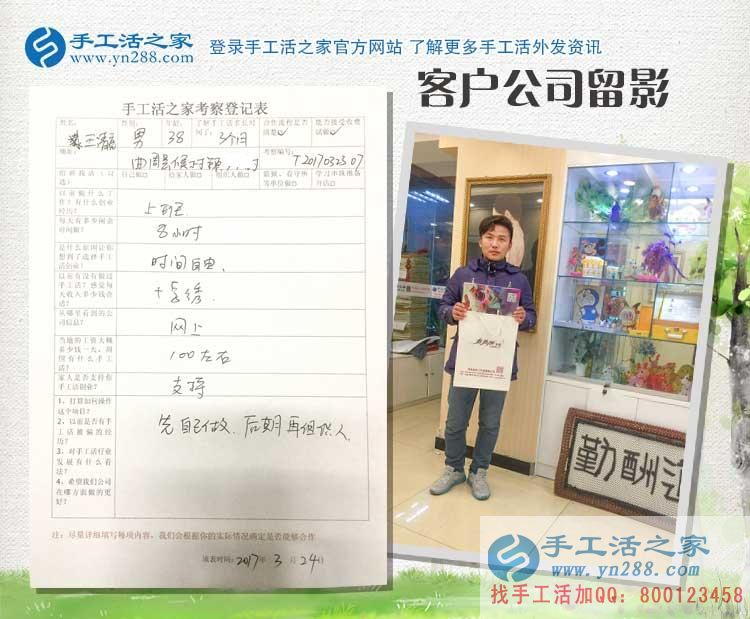 手工活之家
www.yn288.com
登录手工活之家官方网站 了解更多手工活外发资讯
客户公司留影
手工活之家考察登记表
姓名: 男 年龄: 38 了解手工活多长时间了: 3个月 合作流程是否清楚✓ 能否接受收费试做✓
地址: 曲周县侯村镇 考察编号: T2017032507
招聘我活(以选) 自己做□ 给家人做□ 组织人做□ 监狱、看守所等单位做□ 学习串珠准备开店□
以前做什么工作?有什么创业经历? 上班
每天有多少闲余时间做? 8小时
是什么原因让你想到了选择手工活创业? 时间自由
以前有没有做过手工活?感觉每天收入多少钱合适? 十字绣
从哪里看到的公司信息? 网上
当地的工资大概多少钱一天,周围有什么手工活? 100左右
家人是否支持你手工活创业? 支持
1、打算如何操作这个项目?
2、以前是否有手工活被骗的经历?
3、对手工活行业发展有什么看法?
4、希望我们公司在哪方面做的更好?
先自己做、后期再组织人
注:尽量详细填写每项内容,我们会根据你的实际情况确定是否能够合作
填表时间:2017年3月24日
勤酬
手工活之家
www.yn288.com
找手工活加QQ:800123458